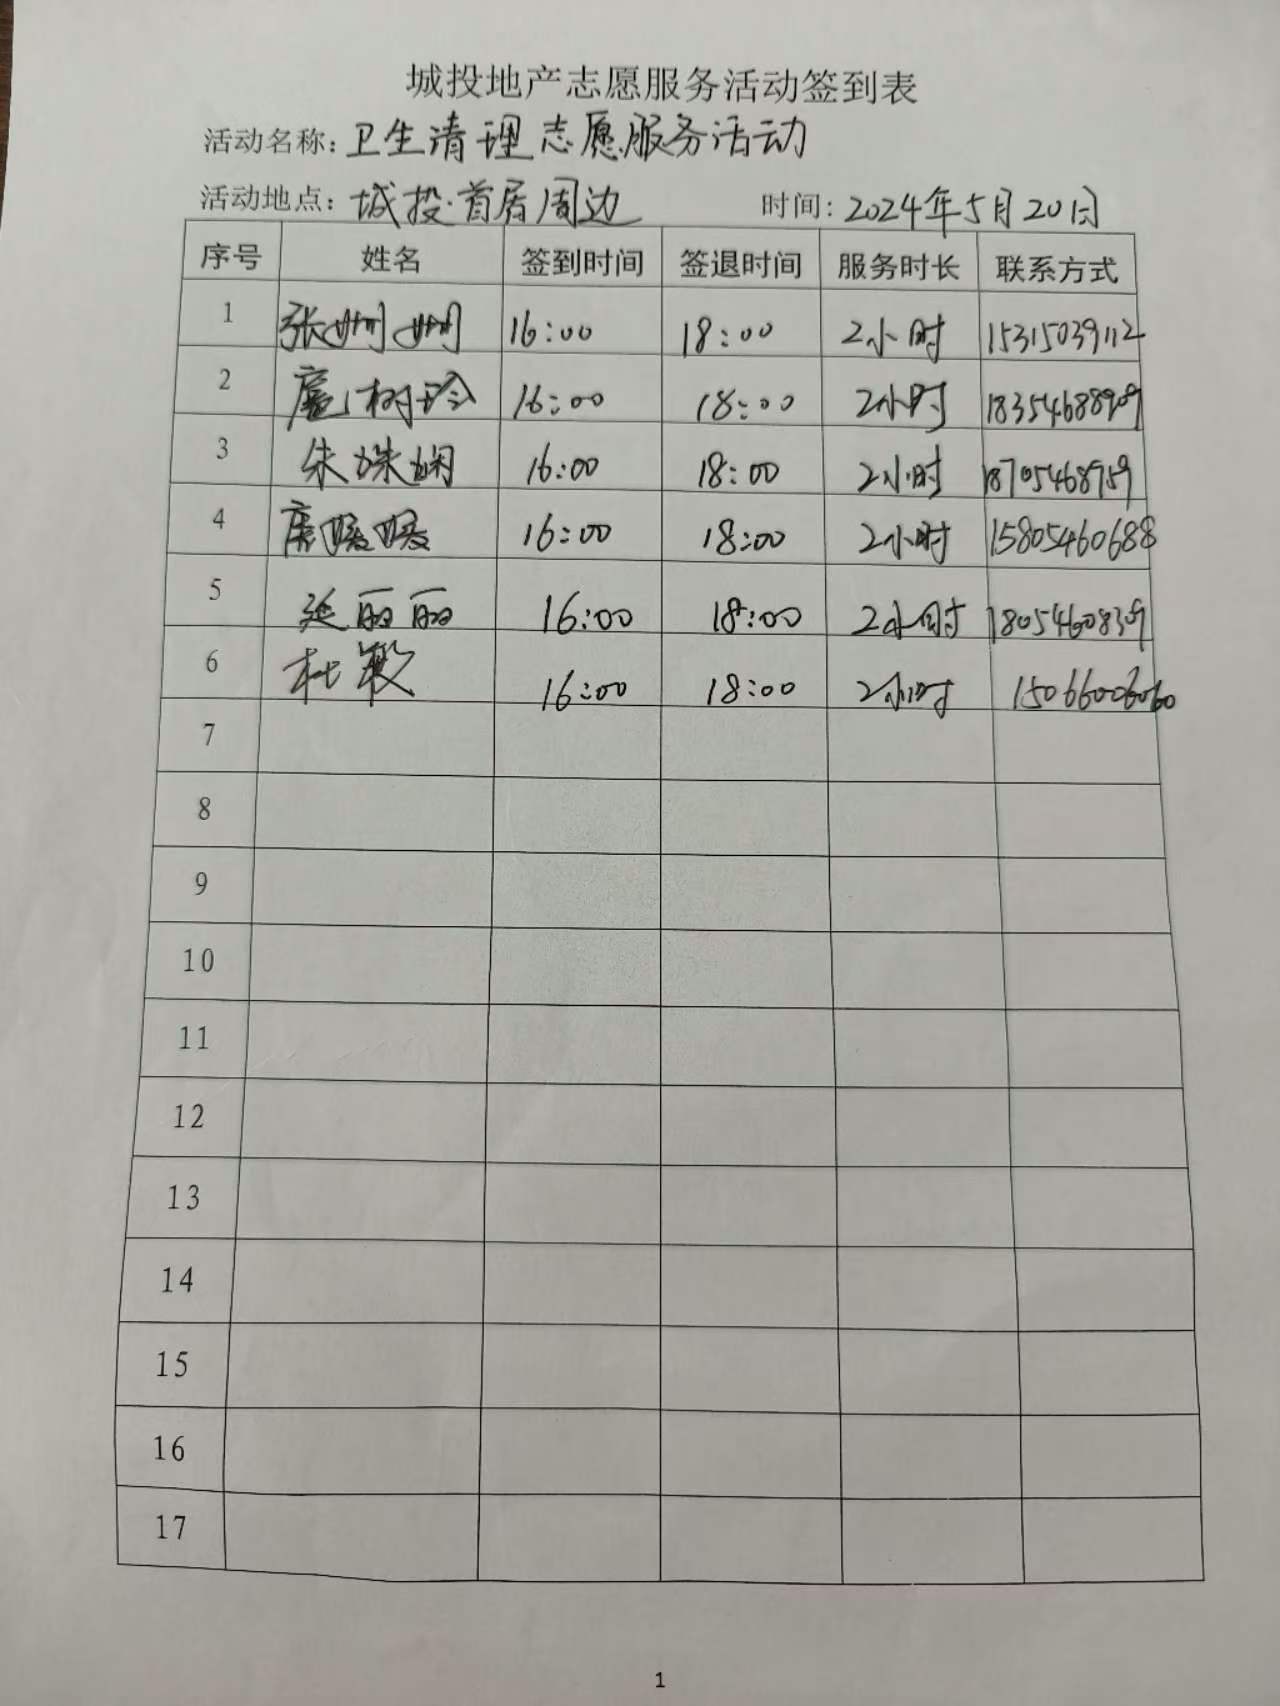 城投地产志愿服务活动签到表
活动名称: 卫生清理志愿服务活动
活动地点: 城投·首居周边 时间: 2024年5月20日
序号 姓名 签到时间 签退时间 服务时长 联系方式
1 张姗姗 16:00 18:00 2小时 15315039112
2 树玲 16:00 18:00 2小时
3 朱姝娴 16:00 18:00 2小时 18705468959
4 唐暖暖 16:00 18:00 2小时 15805460688
5 延丽丽 16:00 18:00 2小时 18054608309
6 杜毅 16:00 18:00 2小时 15066006060
7
8
9
10
11
12
13
14
15
16
17
1